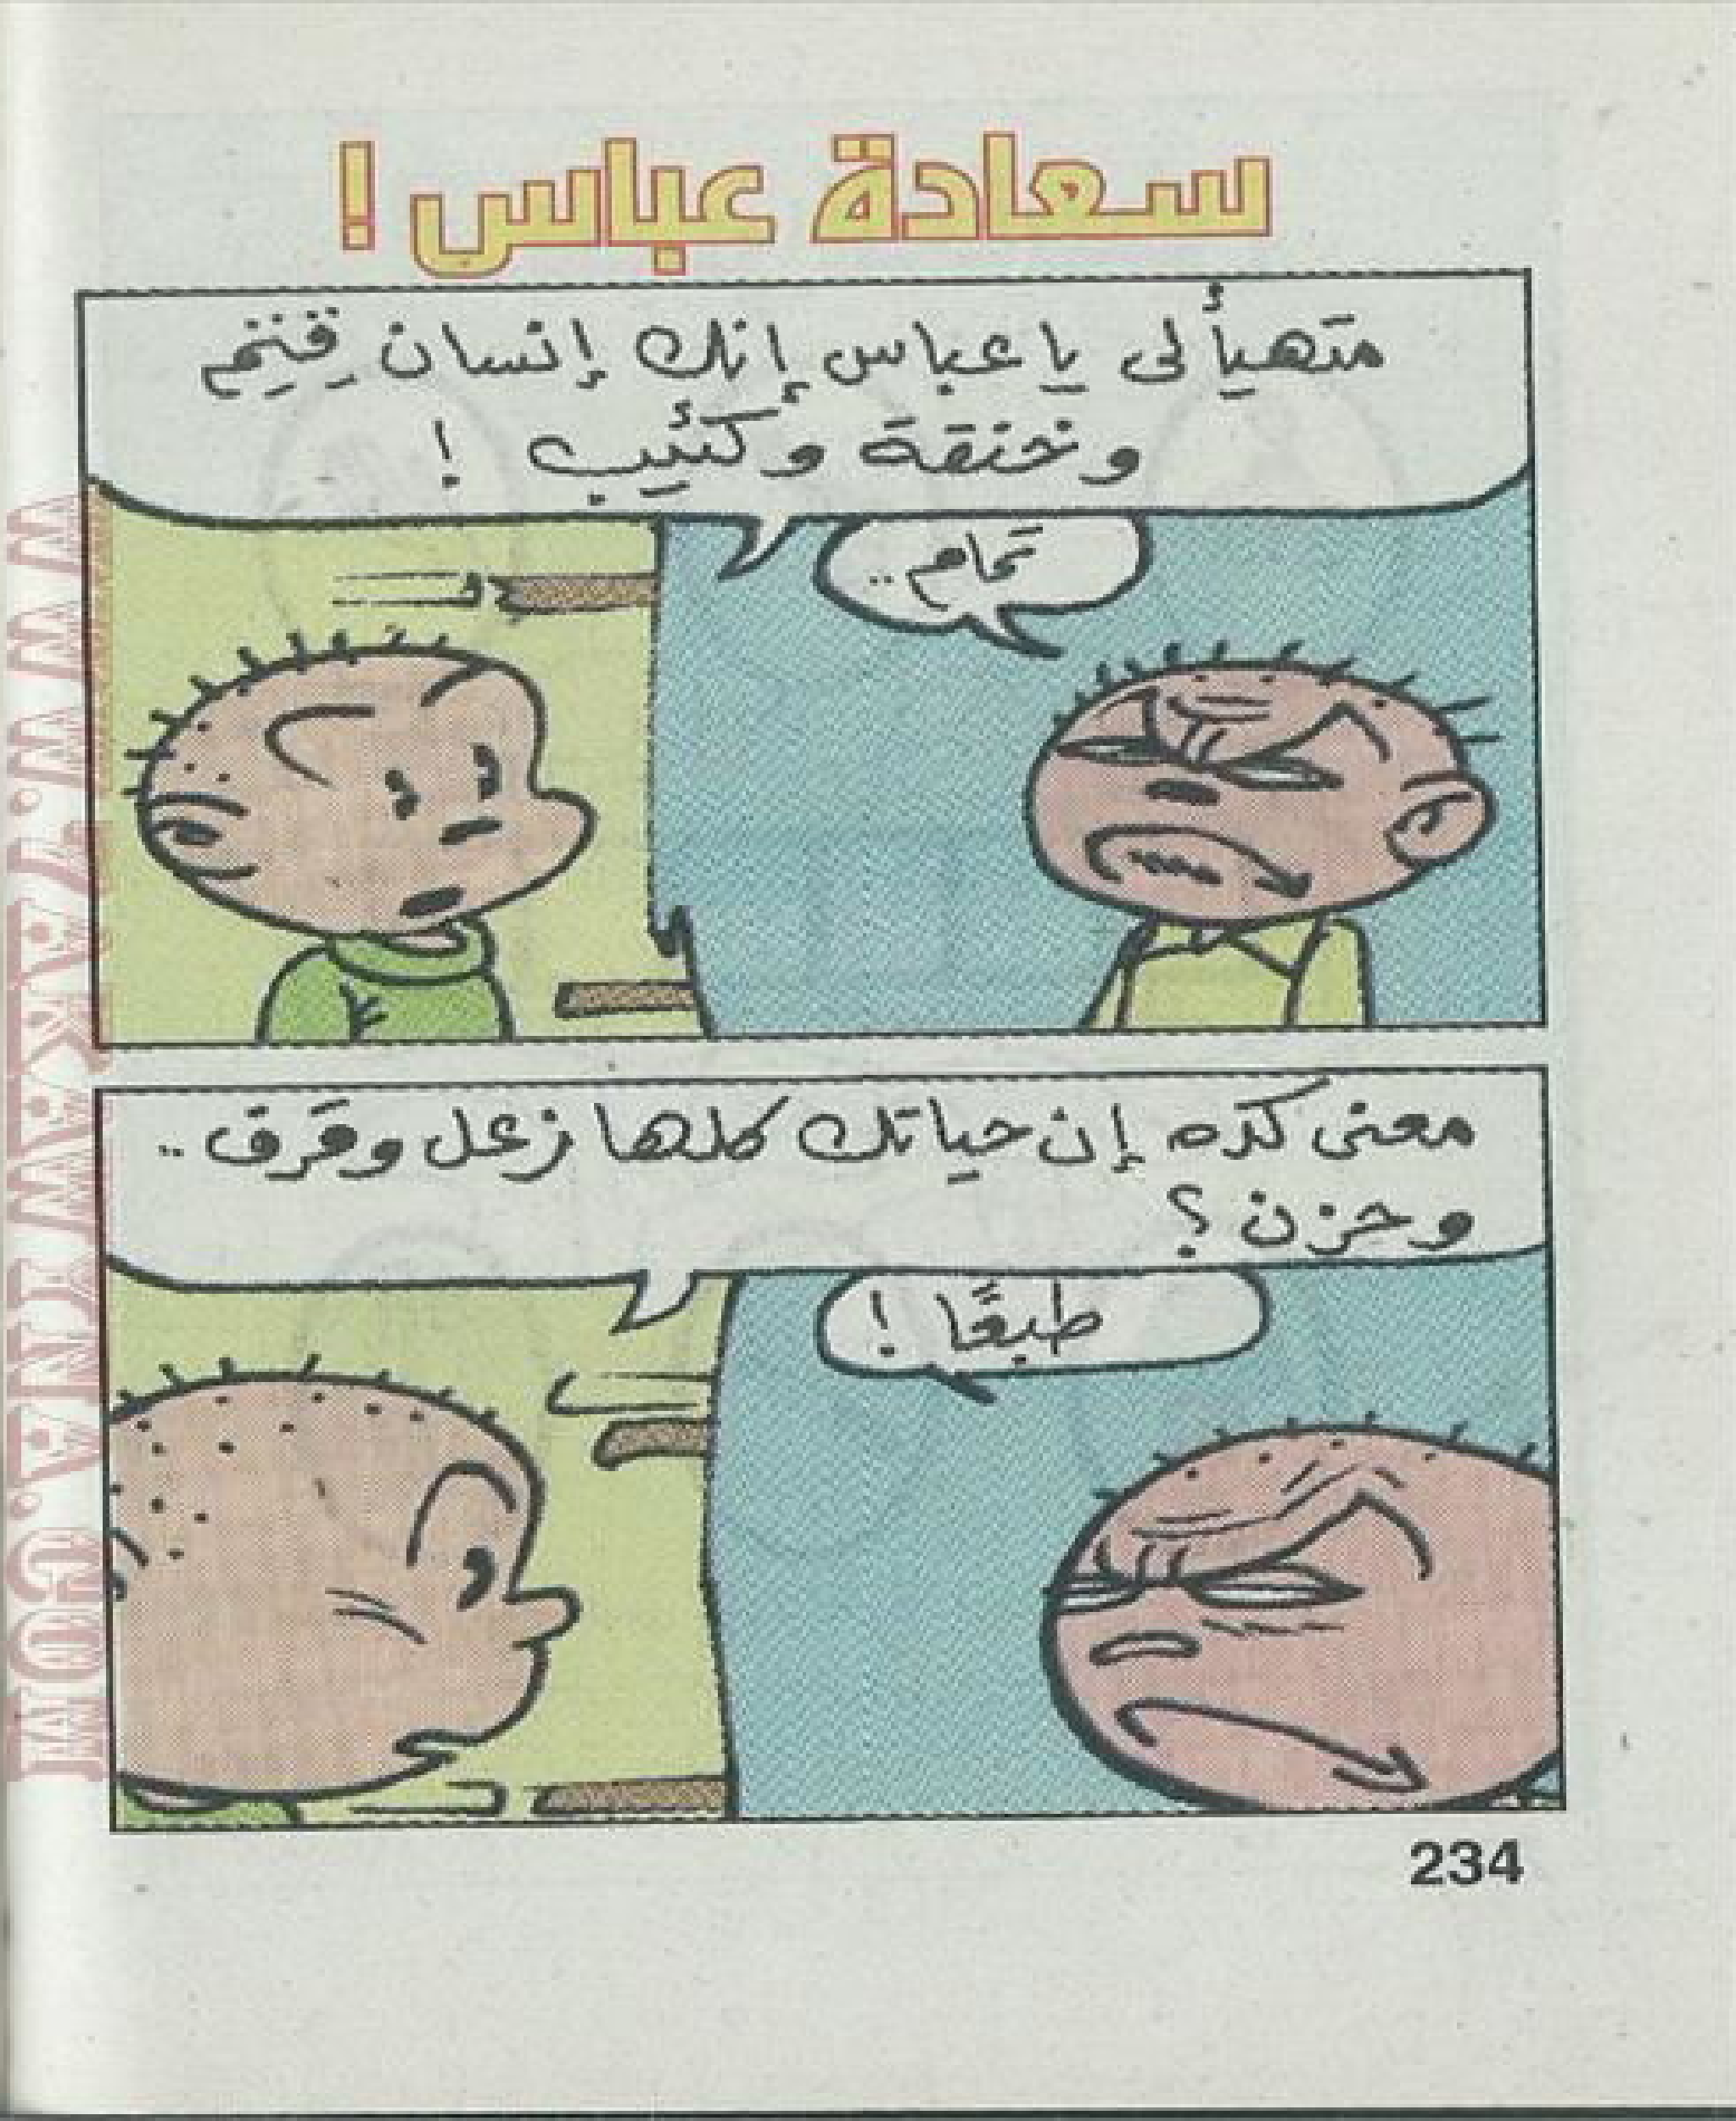 سعادة عباس !
متهيأ لى يا عباس إنك إنسان قِنِم
وخنقة وكئيب !
تمام ..
معنى كده إن حياتك كلها زعل وقرق ..
وحزن ؟
طبعًا !
234
WWW.ARAWINA.COM